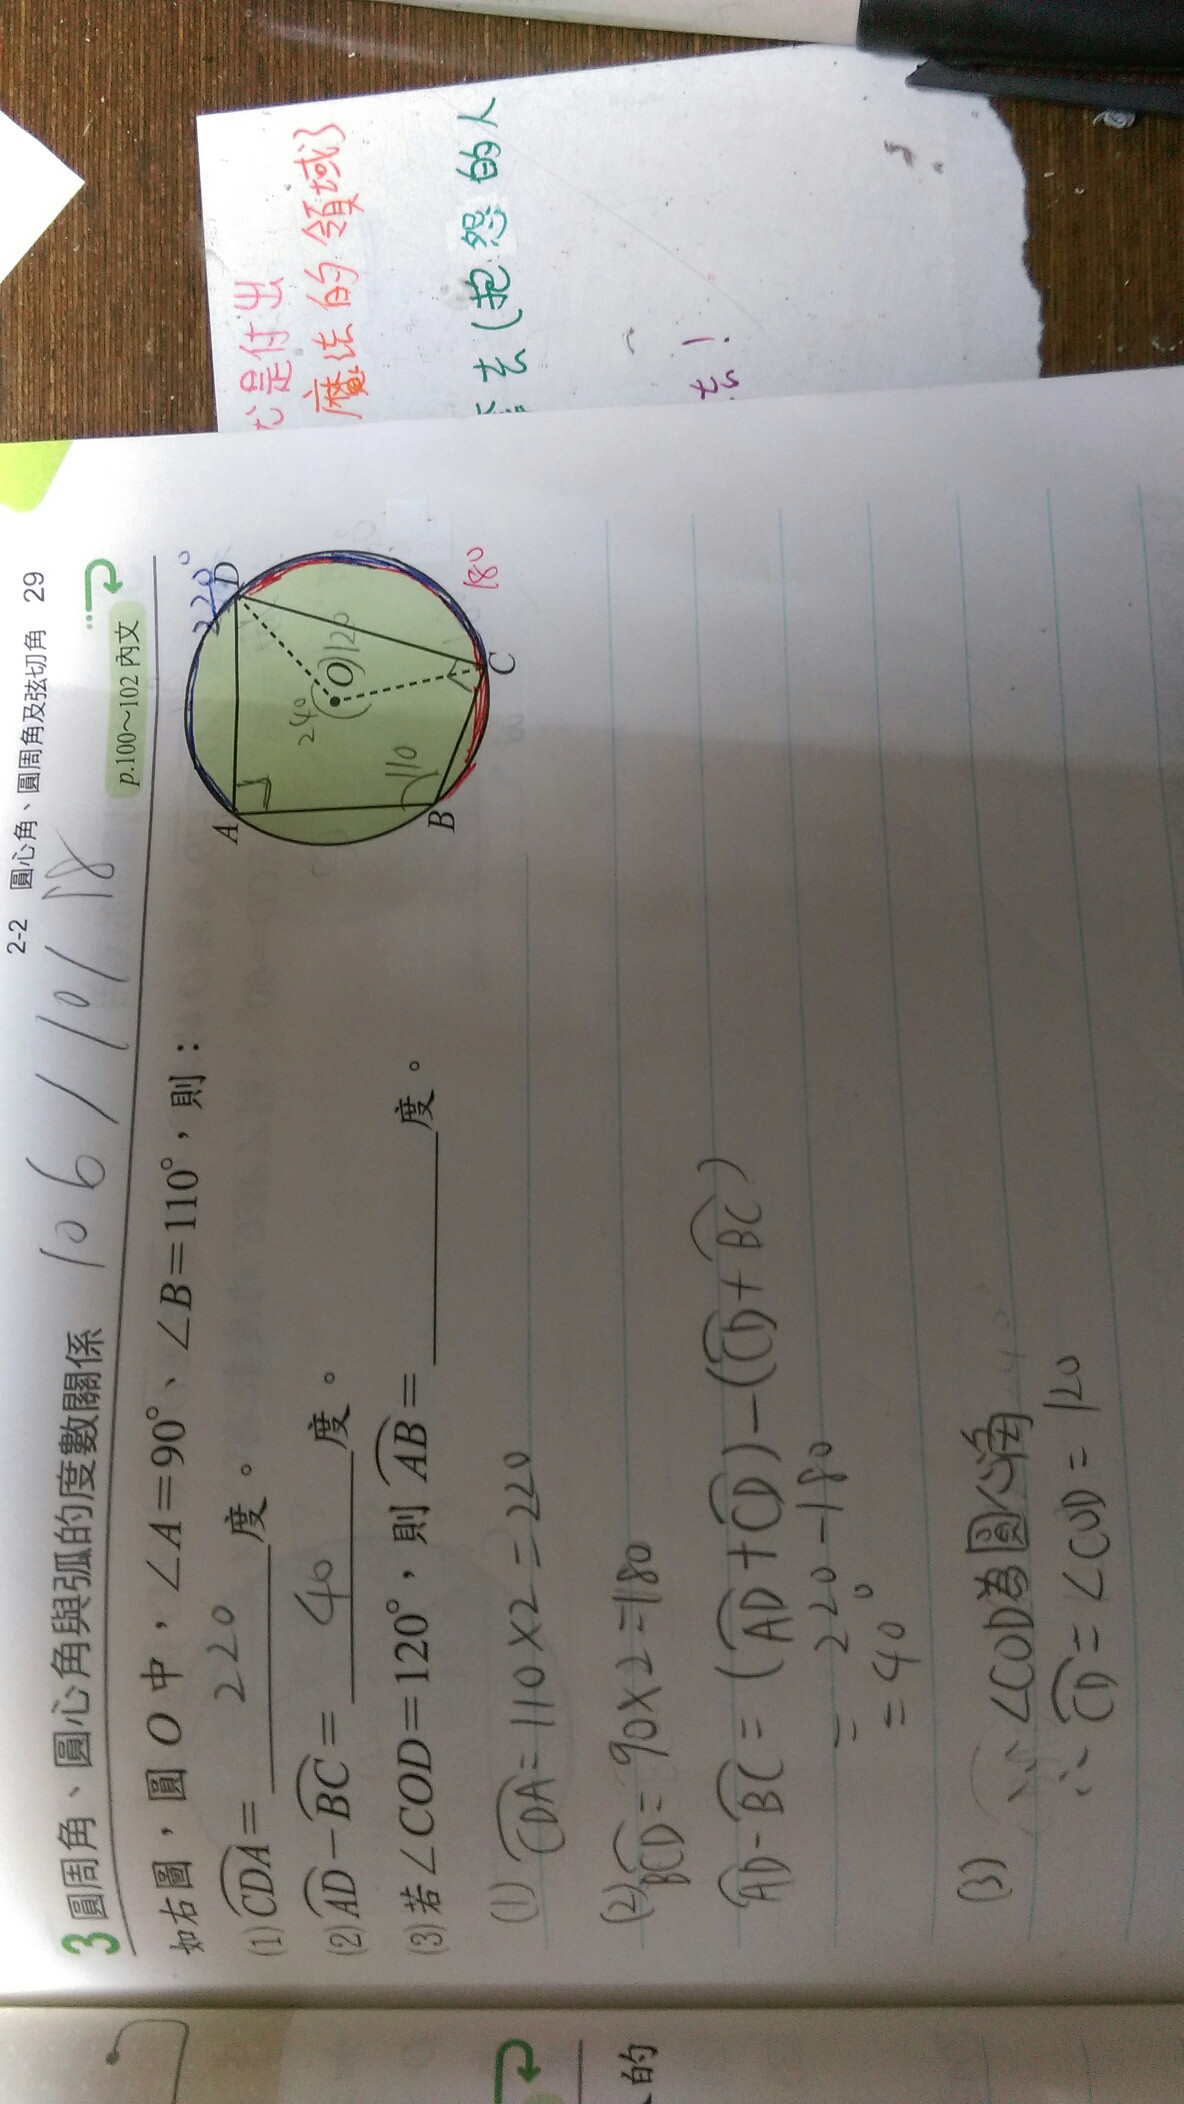 2-2 圓心角、圓周角及弦切角 29
3 圓周角、圓心角與弧的度數關係
106/10/18
p.100～102 內文
如右圖，圓 O 中，∠A=90°、∠B=110°，則：
(1) CDA= 220 度。
(2) AD−BC= 40 度。
(3) 若∠COD=120°，則 AB= 度。
A
B
C
D
O
220°
240
120
110
180
(1) CDA=110×2=220
(2) BCD=90×2=180
AD-BC=(AD+CD)-(CD+BC)
=220-180
=40°
(3) ∵∠COD為圓心角
∴CD=∠COD=120
是付出
魔法的領域了
去(抱怨的人
去!
人的